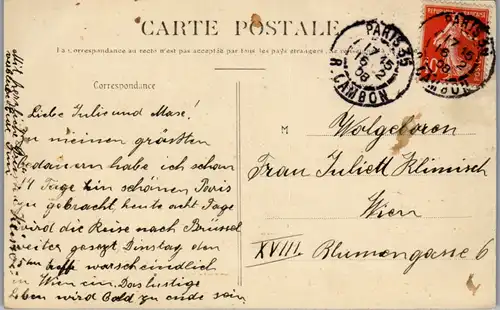 CARTE POSTALE
La correspondance au recto n'est pas acceptée par tous les pays étrangers
Correspondance
Liebe Julie und Maxe!
Zu meinen grössten
Bedauern habe ich schon
14 Tage in schönen Paris
zu gebracht, heute acht Tage
wird die Reise nach Brüssel
weiter gesezt, Dinstag den
warscheindlich
in Wien ein. Das lustige
Leben wird Bald zu ende sein
M
Wolgeboren
Frau Juliett Klimisch
Wien
XVIII. Blumengasse 6
PARIS 35
17 15
16 2
08
R. CAMBON
PARIS 35
17 15
16 2
08
R. CAMBON